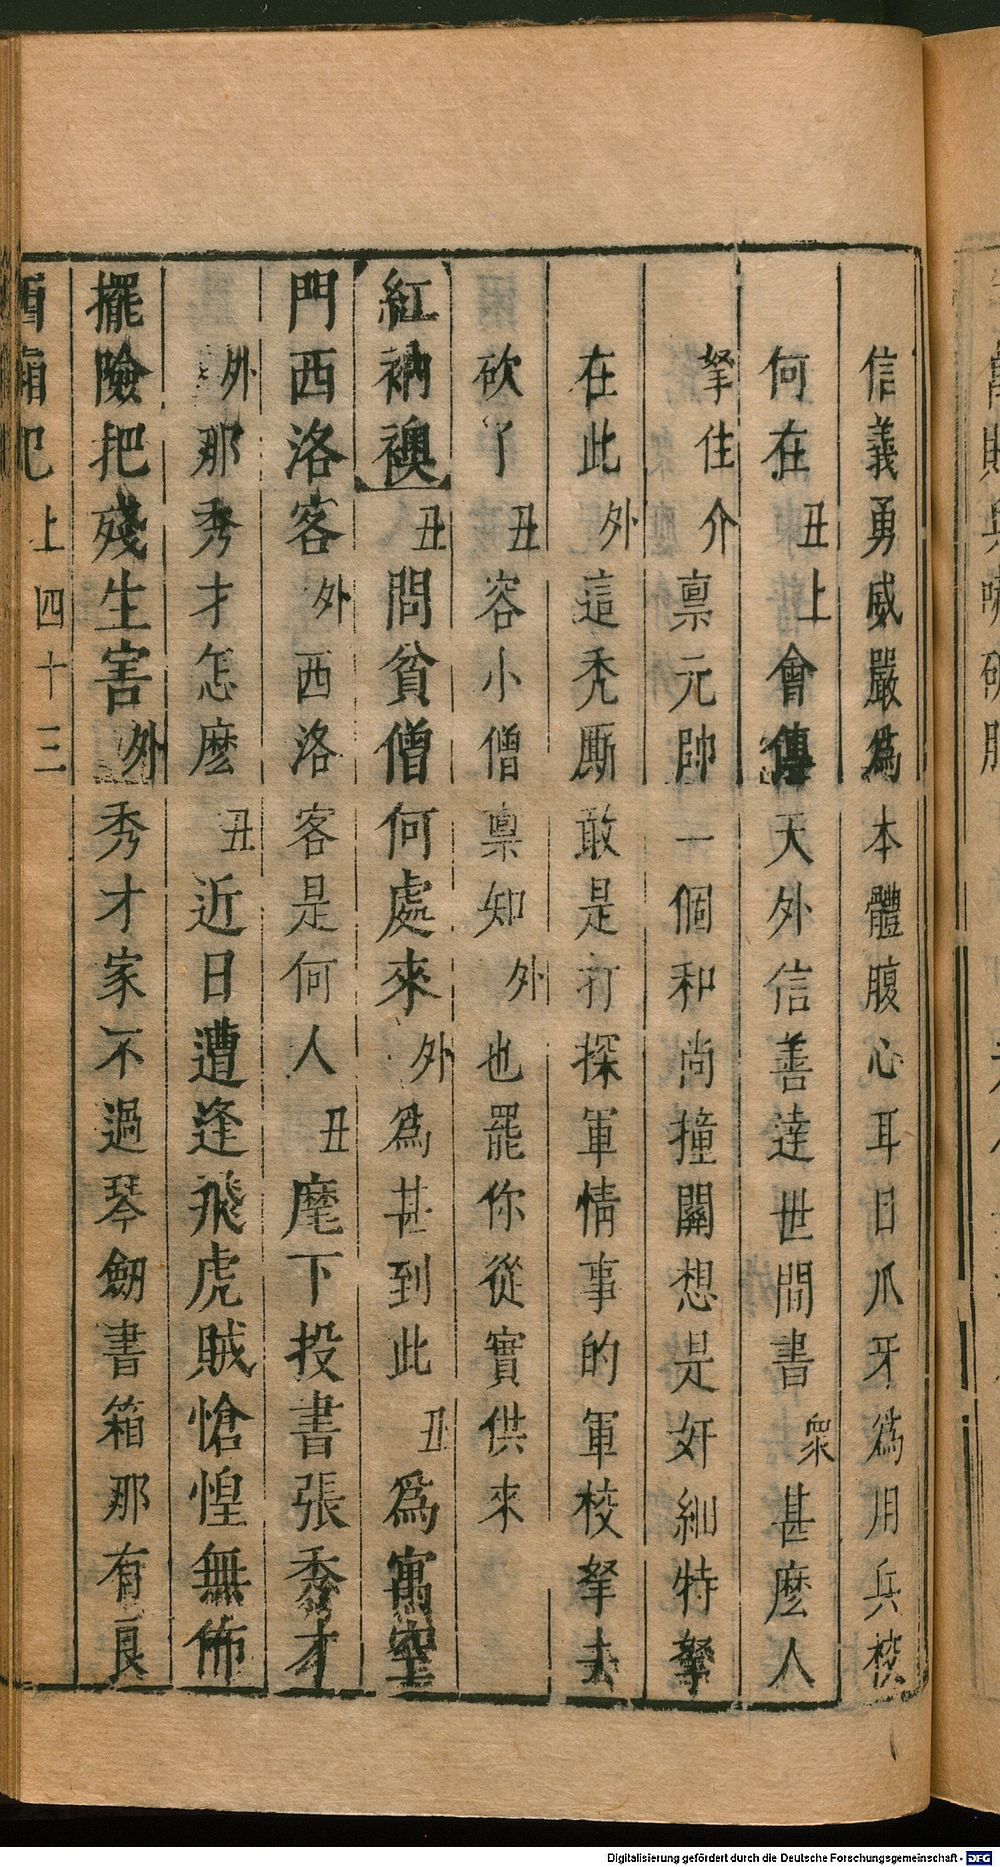 信義勇威嚴爲本體腹心耳目爪牙爲用兵校
何在丑上會傳天外信善達世間書衆甚麽人
拏住介禀元帥一個和尚撞關想是奸細特拏
在此外這秃厮敢是打探軍情事的軍校拏去
砍了丑容小僧禀知外也罷你從實供來
紅衲襖丑問貧僧何處來外爲甚到此丑爲寓空
門西洛客外西洛客是何人丑麾下投書張秀才
外那秀才怎麽丑近日遭逢飛虎賊愴惶無佈
擺險把殘生害外秀才家不過琴劒書箱那有良
西廂記 上 四十三
Digitalisierung gefördert durch die Deutsche Forschungsgemeinschaft - DFG